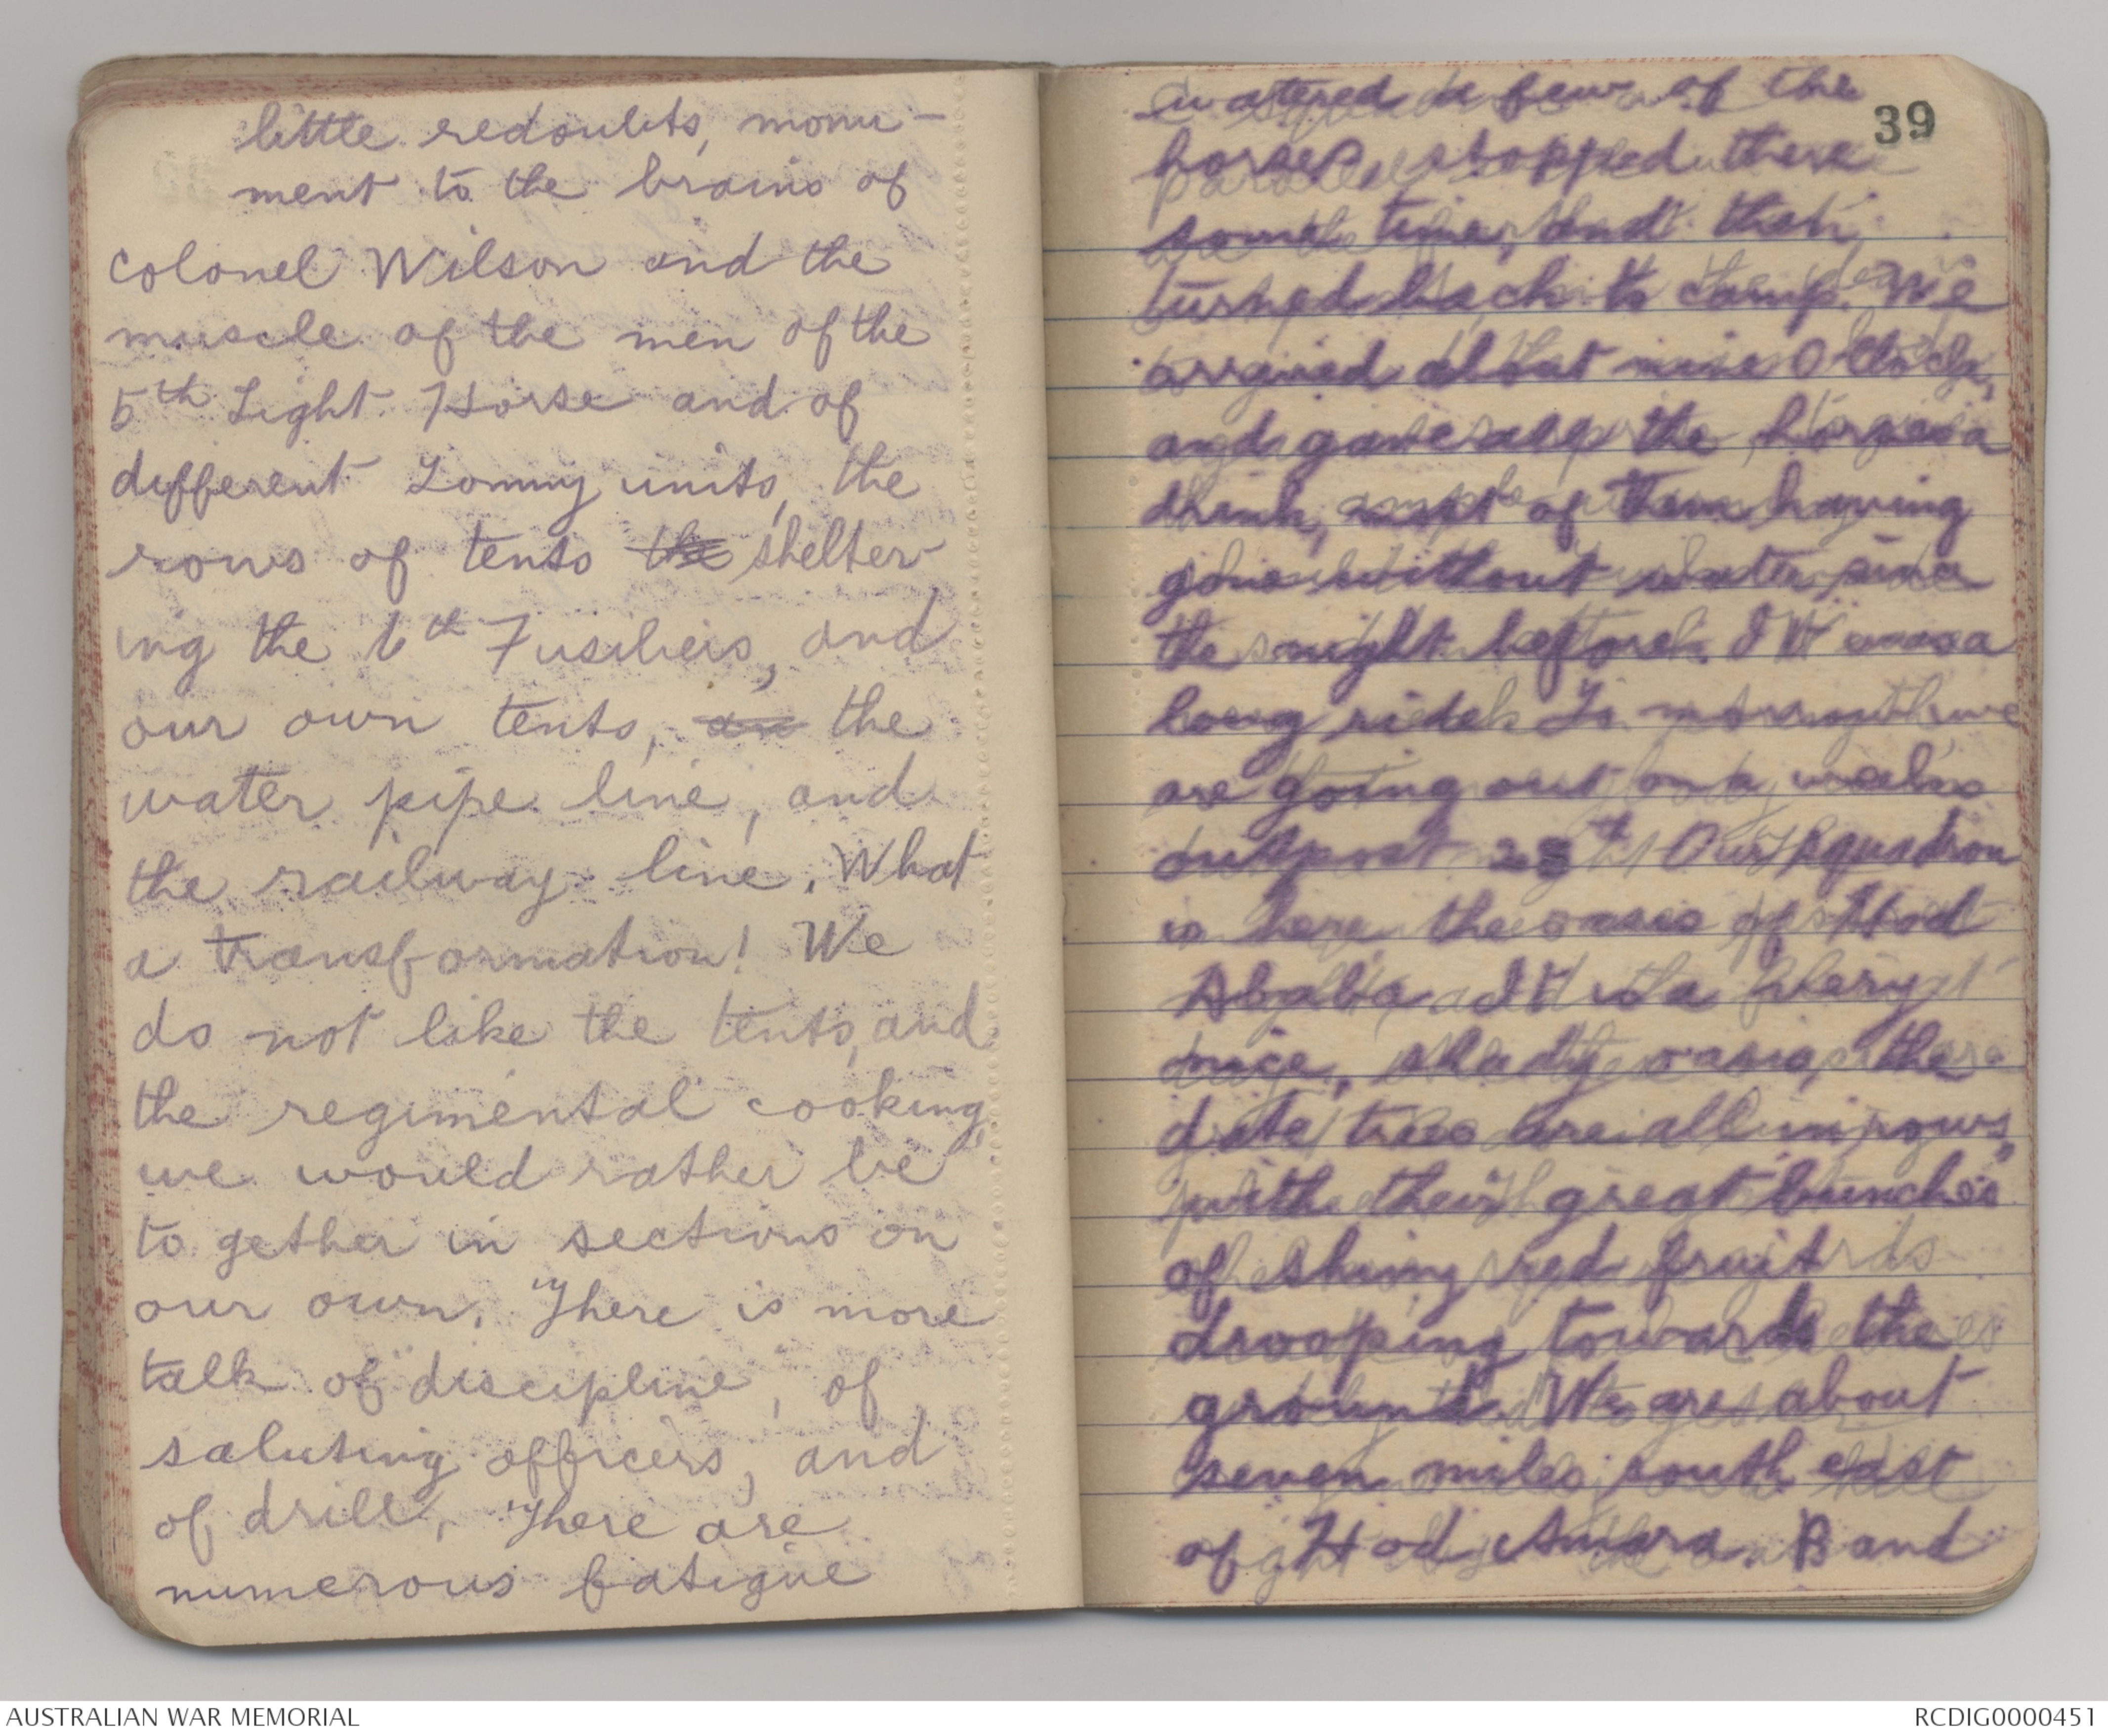 little redoubts, monu-
ment to the brains of
colonel Wilson and the
muscle of the men of the
5th Light Horse and of
different Tommy units, the
rows of tents the shelter-
ing the 6th Fusiliers, and
our own tents, an the
water pipe line, and
the railway line. What
a transformation! We
do not like the tents, and
the regimental cooking,
we would rather be
to gether in sections on
our own. There is more
talk of "discipline", of
saluting officers, and
of drill. There are
numerous fatigue
39
watered a few of the
horses, stopped there
some time, and then
turned back to camp. We
arrived about nine O'Clock,
and gave the horses a
drink, most of them having
gone without water since
the night before. It was a
long ride. To morrow we
are going out on a
outpost 28th Our squadron
is here the oasis of Hod
Ababa It is a very
nice, shady oasis, the
date trees are all in rows,
with their great bunches
of shiny red fruit
drooping towards the
ground. We are about
seven miles south east
of Hod Amara. B and
AUSTRALIAN WAR MEMORIAL
RCDIG0000451